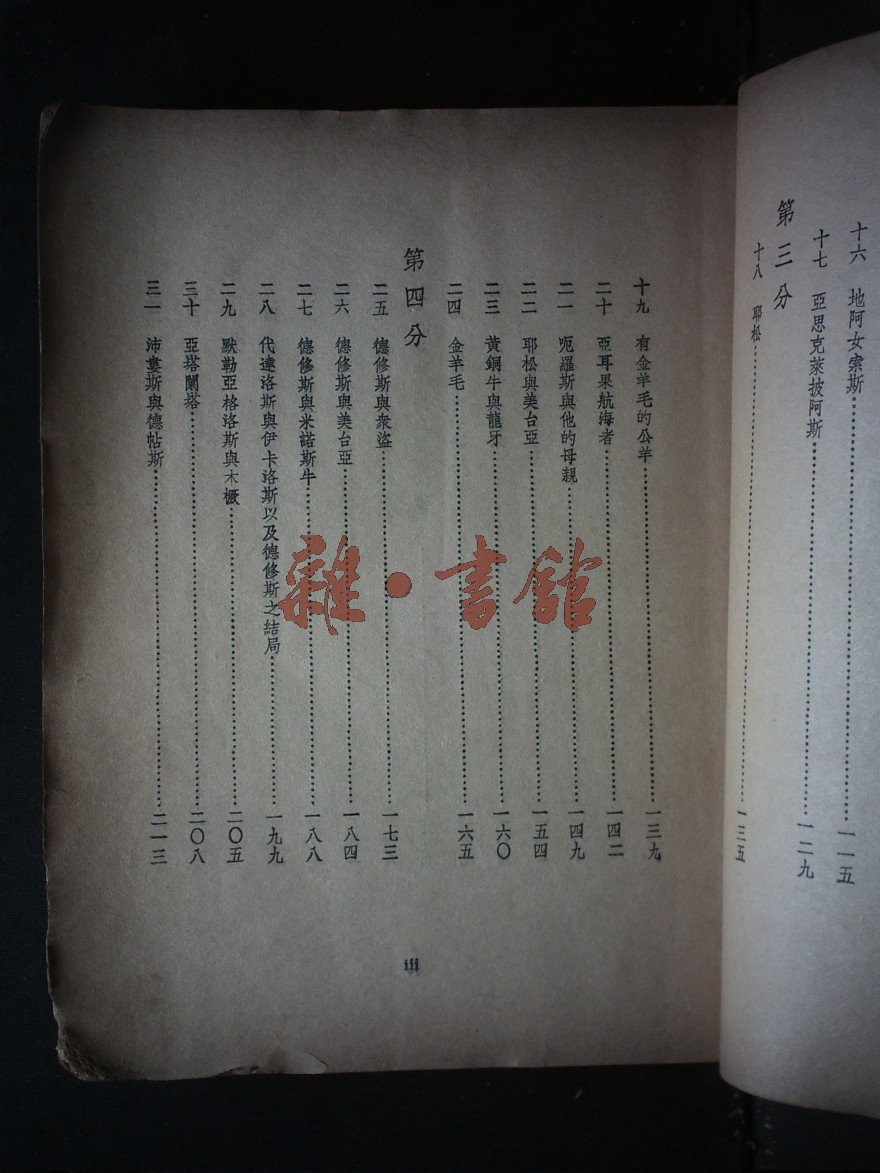 十六 地阿女索斯……一一五
十七 亞思克萊披阿斯……一二九
第三分
十八 耶松……一三五
十九 有金羊毛的公羊……一三九
二十 亞耳果航海者……一四二
二一 呃羅斯與他的母親……一四九
二二 耶松與美台亞……一五四
二三 黃銅牛與龍牙……一六〇
二四 金羊毛……一六五
第四分
二五 德修斯與衆盜……一七三
二六 德修斯與美台亞……一八四
二七 德修斯與米諾斯牛……一八八
二八 代達洛斯與伊卡洛斯以及德修斯之結局……一九九
二九 默勒亞格洛斯與木橛……二〇五
三十 亞塔闌塔……二〇八
三一 沛婁斯與德帖斯……二一三
iii
雜·書館